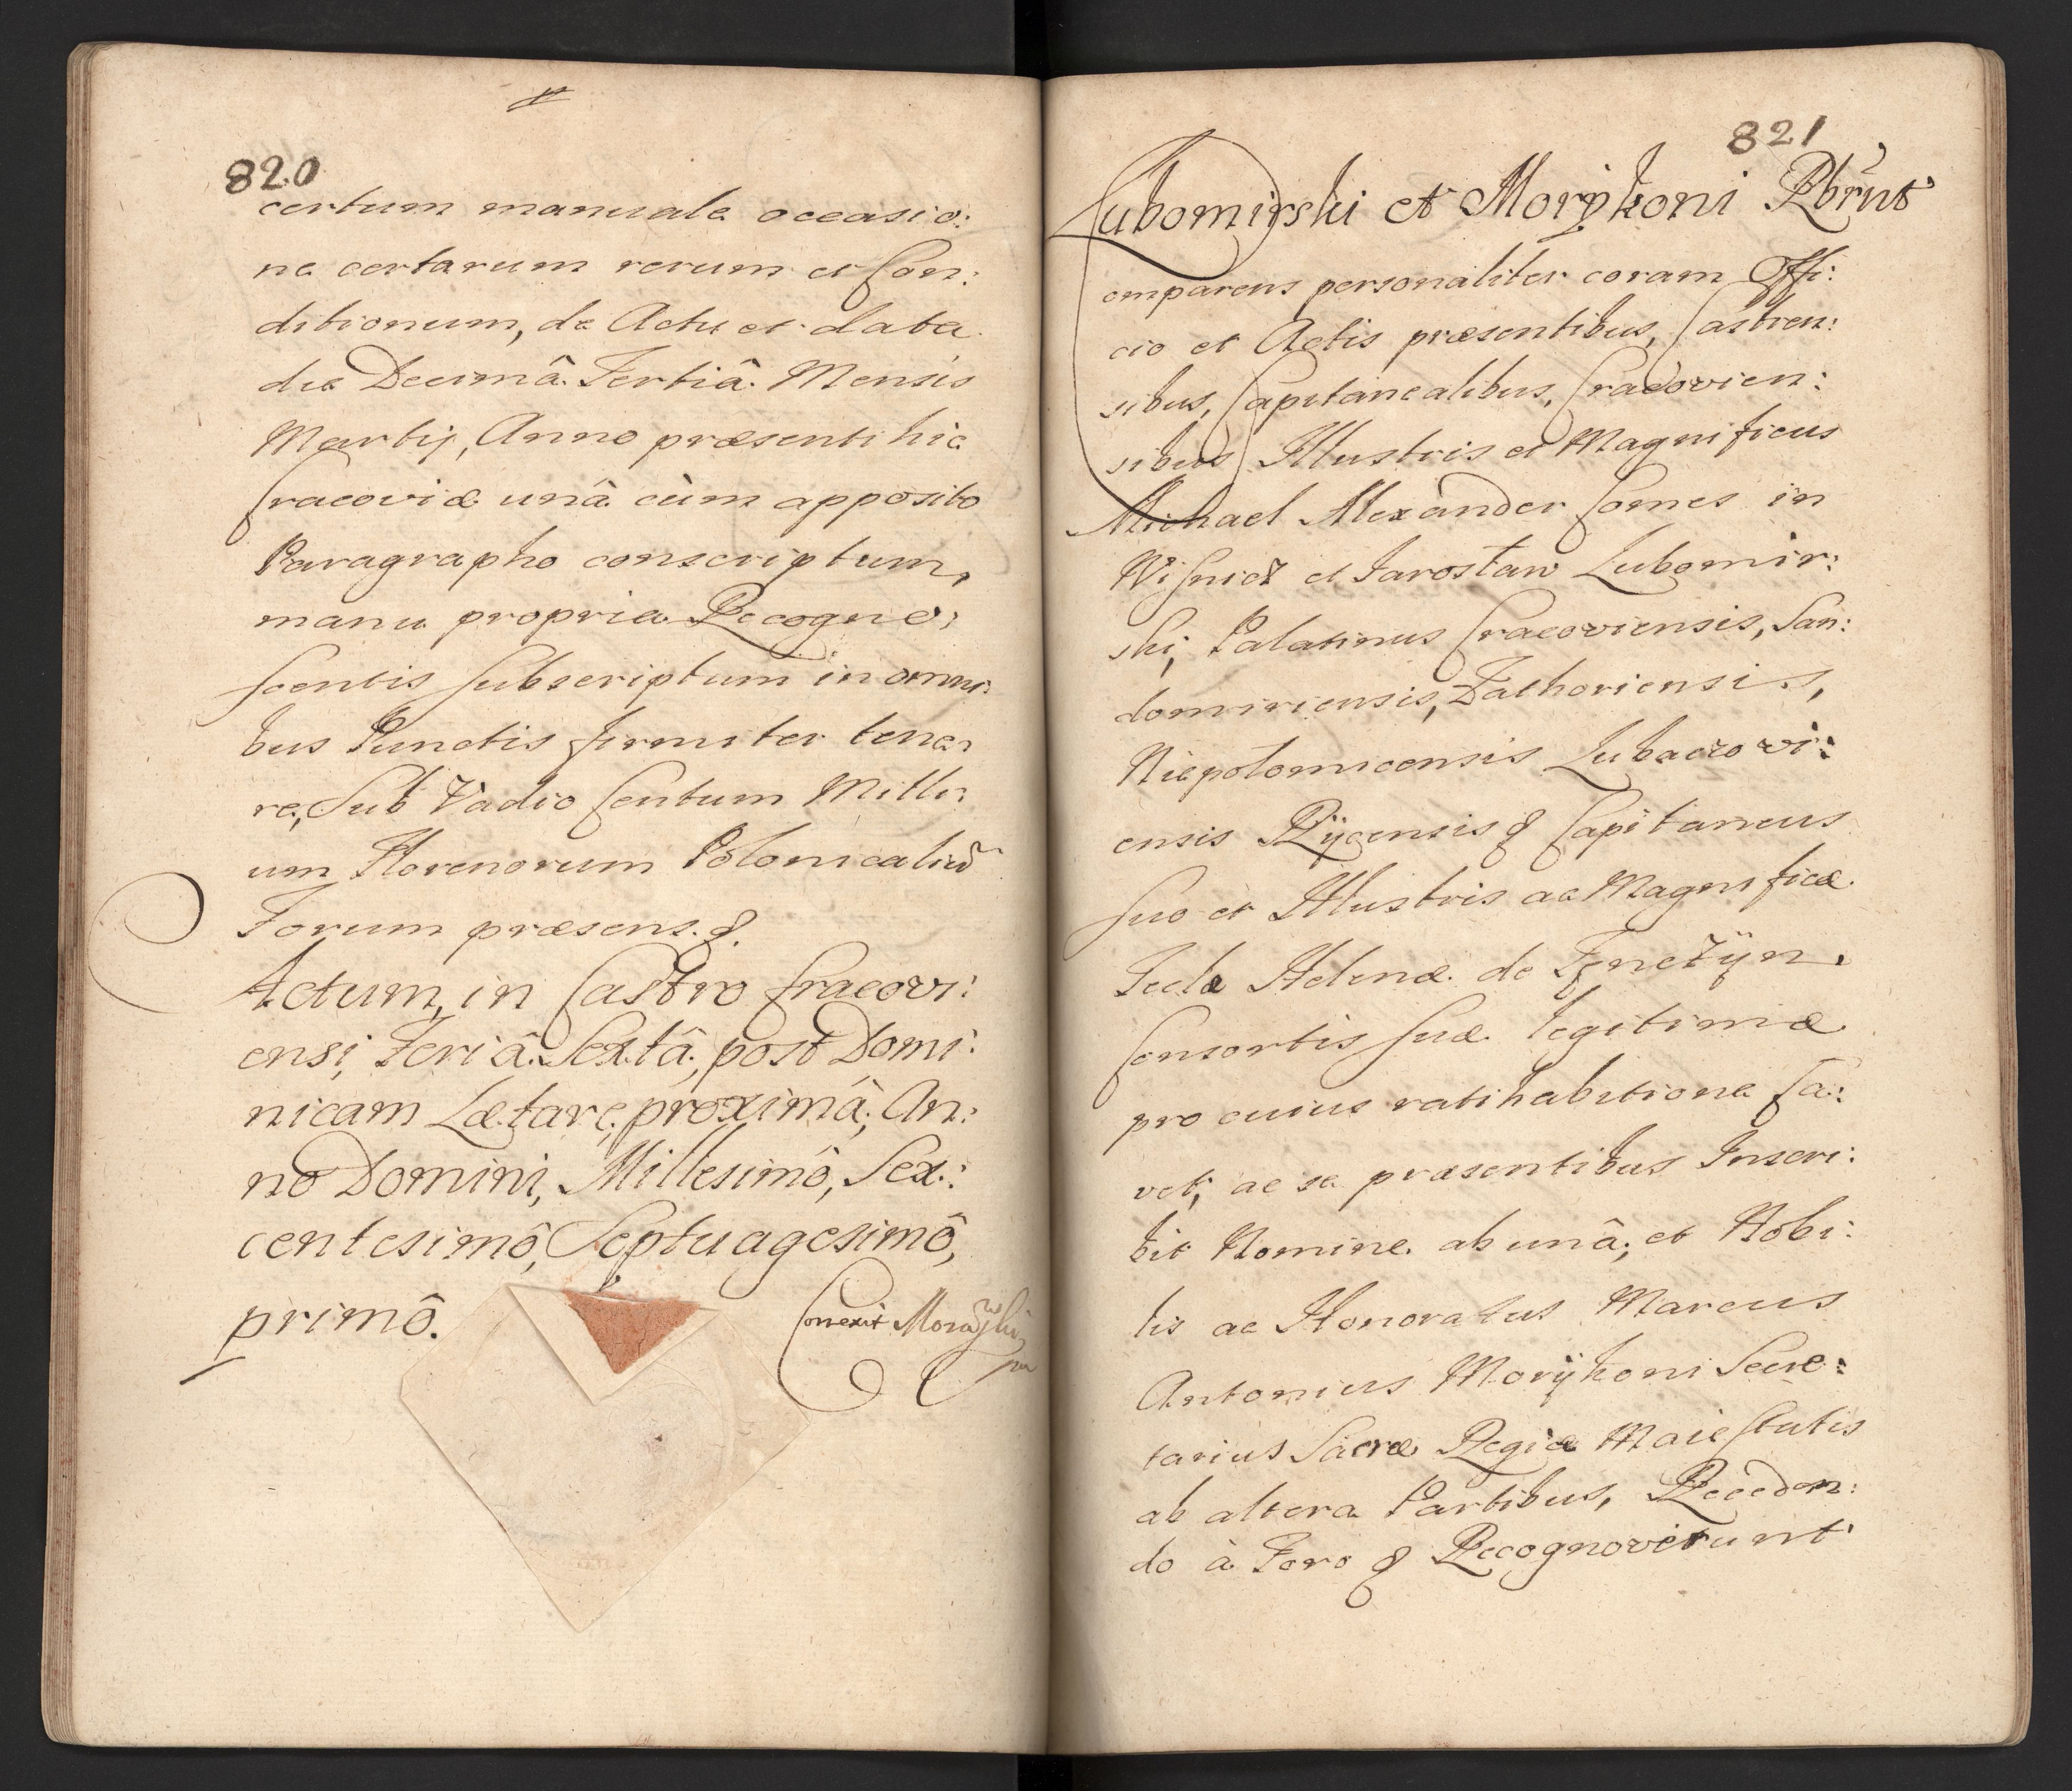 820
certum manuale occasio:
ne certarum rerum et Con:
ditionum, de Actu et data
die Decimâ Tertiâ Mensis
Martij, Anno præsenti hic
Cracoviæ unâ cùm apposito
Paragrapho conscriptum,
manu propria Recogno:
scentis subscriptum in omni:
bus Punctis firmiter tene:
re, Sub Vadio Centum Milli:
um Florenorum Polonicaliũ
Forum præsens &.
Actum, in Castro Cracovi:
ensi, Feriâ Sextâ, post Domi:
nicam Lætare, proximâ, An:
no Domini, Millesimô, Sex:
centesimô, Septuagesimô,
primô.
Correxit
821
Lubomirski et Morÿkoni Rbrũt
Comparens personaliter coram Offi:
cio et Actis præsentibus, Castren:
sibus, Capitanealibus, Cracovien:
sibus Illustris et Magnificus
Michael Alexander Comes in
Wiśnicz et Jarosław Lubomir:
ski, Palatinus Cracoviensis, San:
domiriensis, Zathoriensis,
Niepołomicensis Lubaczovi:
ensis Rÿcensis & Capitaneus
suo et Illustris ac Magnificæ
Teclæ Helenæ de Tenczÿn
Consortis suæ legitimæ
pro cuius ratihabitione Ca:
vet, ac se præsentibus Inscri:
bit Nomine ab unâ, et Nobi:
lis ac Honoratus Marcus
Antonius Morÿkoni Secre:
tarius Sacræ Regiæ Maiestatis
ab altera Partibus, Receden:
do à Foro & Recognoverunt